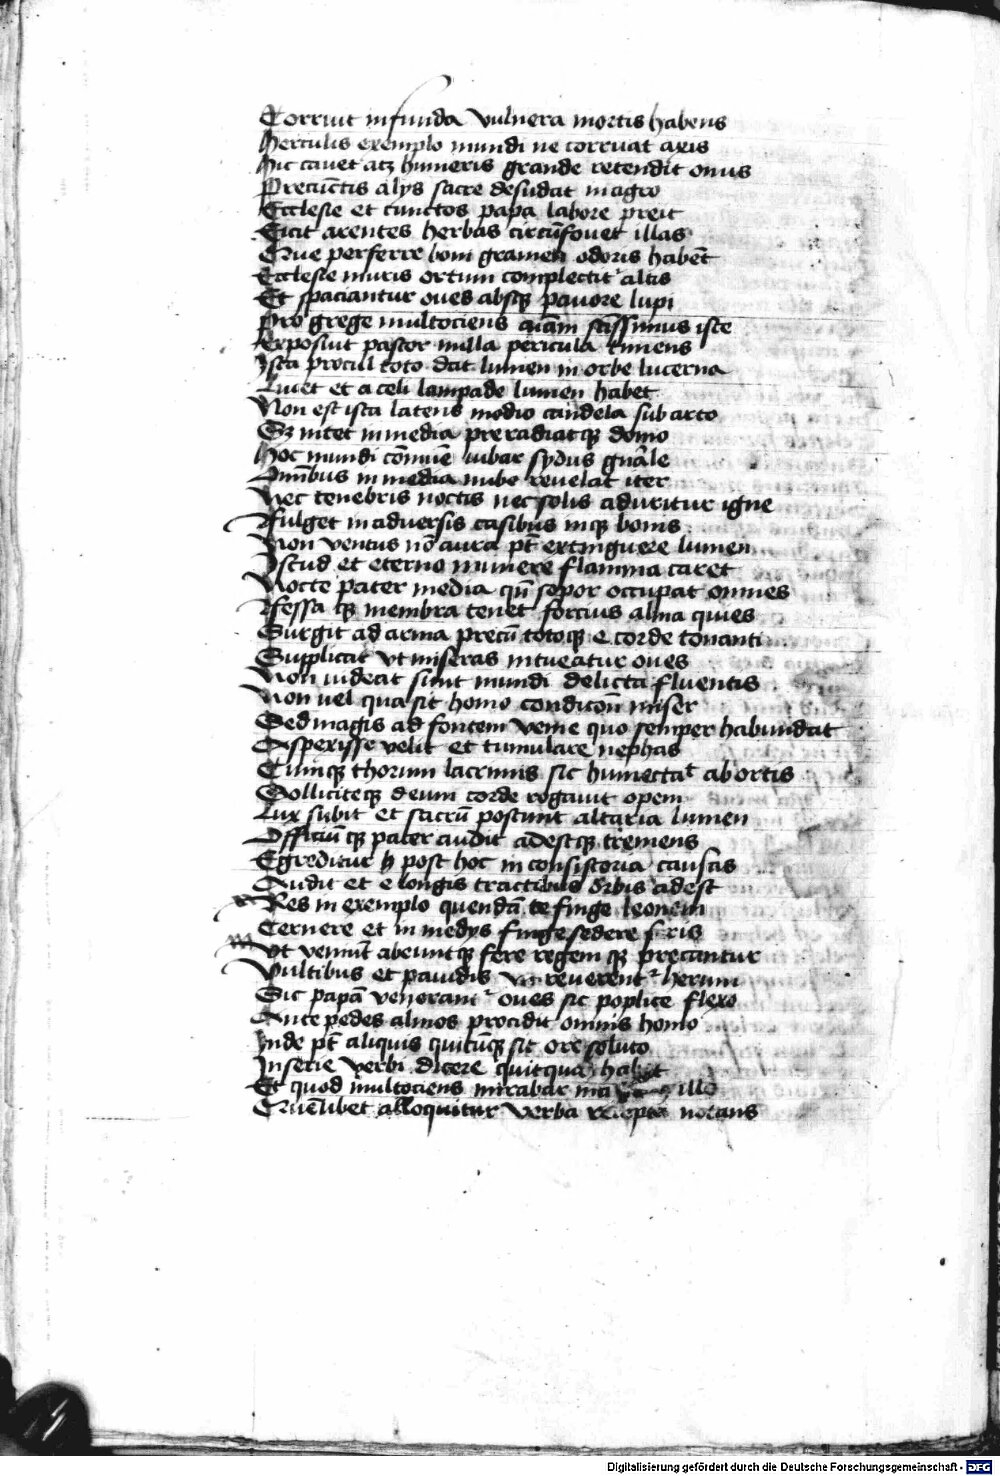 Corruit in funda vulnera mortis habens
Herculis exemplo mundi ne corruat axis
Hic cauet atq humeris grande retendit onus
Precūctis alys sacre desudat in agro
Ecclesie et cunctos papa labore preit
Eicit arentes herbas circūfouet illas
Que perferre boni gramen odoris habēt
Ecclesie muris ortum complectit altis
Et spaciantur oues absq pauore lupi
Pro grege multociens aīam scīssimus iste
Exposuit pastor nulla pericula timens
Ista procul toto dat lumen in orbe lucerna
Luet et a celi lampade lumen habet
Non est ista latens modio candela sub arto
Sz nitet in media preradiatq domo
Hoc mundi cōmūe iubar sydus gnāle
Omībus in media nube reuelat iter
Nec tenebris noctis nec solis aduritur igne
Affulget in aduersis casibus inq bonis
Non ventus nō aura pt̄ extinguere lumen
Istud et eterno munere flamma caret
Nocte pater media qn̄ sopor occupat omnes
Fessa q membra tenet forcius alma quies
Surgit ad arma precū totoq e corde tonanti
Supplicat vt miseras intueatur oues
Non videat sunt mundi delicta fluentis
Non vel qua sit homo condicōn miser
Sed magis ad fontem venie quo semper habundat
Aspexisse velit et tumulare nephas
Cumq thorum lacrimis sic humectat abortis
Solliciteq deum corde rogauit opem
Lux subit et sacrū poscunt altaria lumen
Officiū q pater audit adestq tremens
Egreditur h post hoc in consistoria causas
Audit et e longis tractibus orbis adest
Res in exemplo quendā te finge leonem
Cernere et in medys finge sedere feris
Vt veniūt abeuntq fere regem q precantur
Vultibus et pauidis reuerent herum
Sic papā venorant oues sic poplite flexo
Ante pedes almos procidit omnis homo
Inde pt̄ aliquis quicūq sit ore soluto
In serie verbi dicere quitqua habet
Et quod multociens mirabar illo
Quēlibet alloquitur verba recepta notans
Digitalisierung gefördert durch die Deutsche Forschungsgemeinschaft - DFG